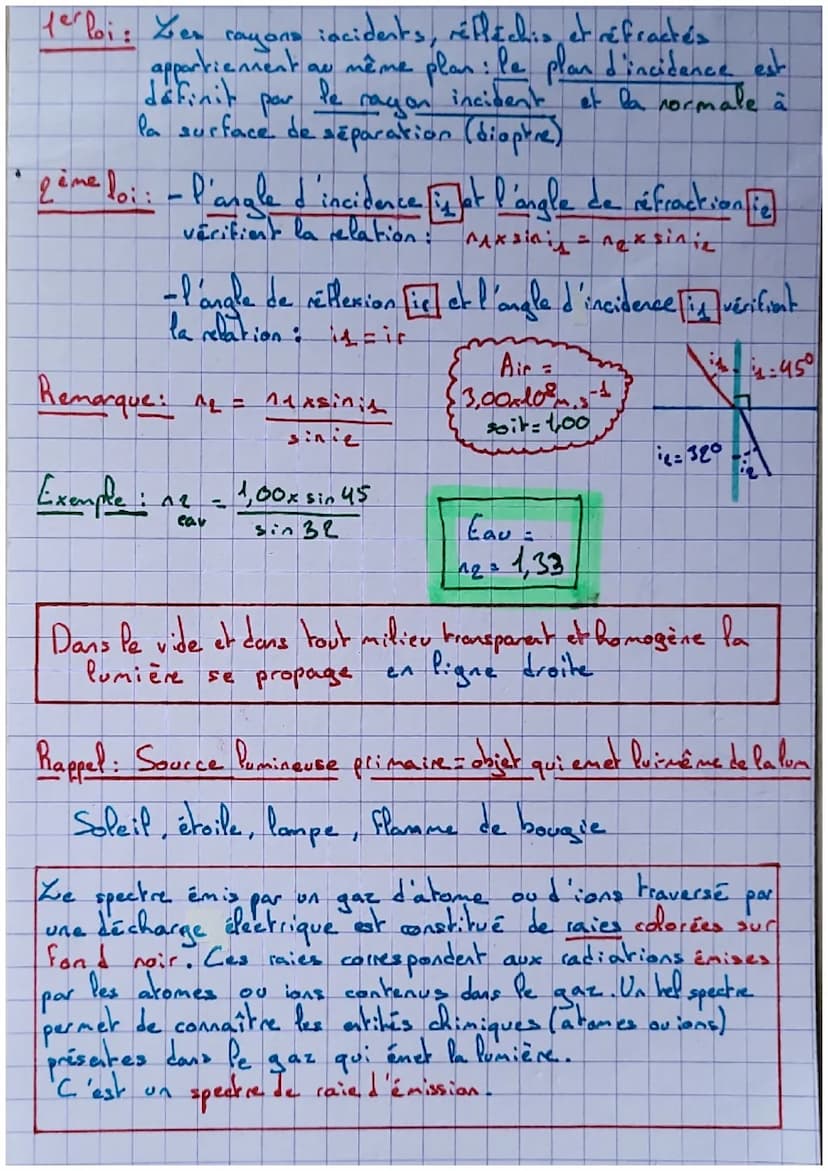 1er loi : Les rayons incidents, réfléchis et réfractés
appartiennent au même plan : le plan d'incidence est
définit par le rayon incident et la normale à
la surface de séparation (dioptre)
2ème loi : - l'angle d'incidence i1 et l'angle de réfraction i2
vérifient la relation : n1 x sin i1 = n2 x sin i2
- l'angle de réflexion ir et l'angle d'incidence i1 vérifient
la relation : i1 = ir
Remarque : n2 = n1 x sin i1
sin i2
Air =
3,00x10⁸ m.s⁻¹
soit = 1,00
i1 i1 = 45°
i2 = 32° i2
Exemple : n2 eau = 1,00 x sin 45
sin 32
Eau =
n2 = 1,33
Dans le vide et dans tout milieu transparent et homogène la
lumière se propage en ligne droite
Rappel : Source lumineuse primaire = objet qui emet lui-même de la lum
Soleil, étoile, lampe, flamme de bougie
Le spectre émis par un gaz d'atome ou d'ions traversé par
une décharge électrique est constitué de raies colorées sur
fond noir. Ces raies correspondent aux radiations émises
par les atomes ou ions contenus dans le gaz. Un tel spectre
permet de connaître les entités chimiques (atomes ou ions)
présentes dans le gaz qui émet la lumière.
C'est un spectre de raie d'émission.